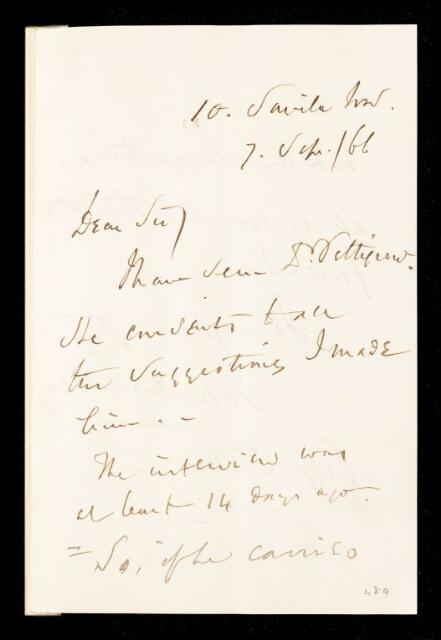 10. Savile Row.
7. Sep. /66
Dear Sir
I have seen Dr. Pettigrew.
He consents to all
the suggestions I made
him. -
The interview was
at least 14 days ago.
= So, if he carries